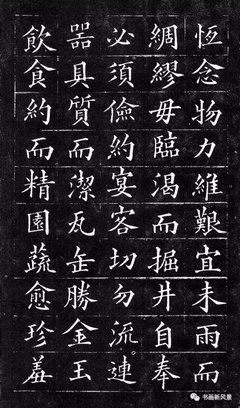 恆念物力維艱宜未雨而
綢繆毋臨渴而掘井自奉
必須儉約宴客切勿流連
器具質而潔瓦缶勝金玉
飲食約而精園蔬愈珍羞
书画新风景